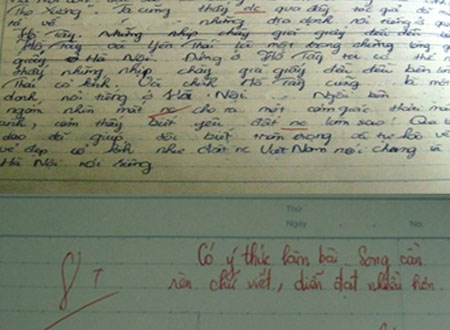 Thọ Xương". Ta cũng thấy đc qua đây tác giả đã
tả về những địa danh nổi tiếng ở quanh
Hồ Tây. Những nhịp chày giã giấy đều đều bên
Hồ Tây và Yên Thái là một trong những làng
giấy ở Hà Nội. Đứng ở Hồ Tây ta có thể
thấy những nhịp chày giã giấy đều đều bên làng
Thái cổ kính. Và chính Hồ Tây cũng là một
danh nổi tiếng ở Hà Nội. Ngồi bên
ngắm nhìn mặt nc cho ta một cảm giác thoải mái
cảm thấy biết yêu đất nc làm sao! Qua bài
dao đã giúp tôi biết trân trọng và tự hào về
vẻ đẹp cổ kính như đất nc Việt Nam nói chung và
Hà Nội nói riêng
Thứ
Ngày No.
8 Có ý thức làm bài. Song cần
rèn chữ viết, diễn đạt nhiều hơn.